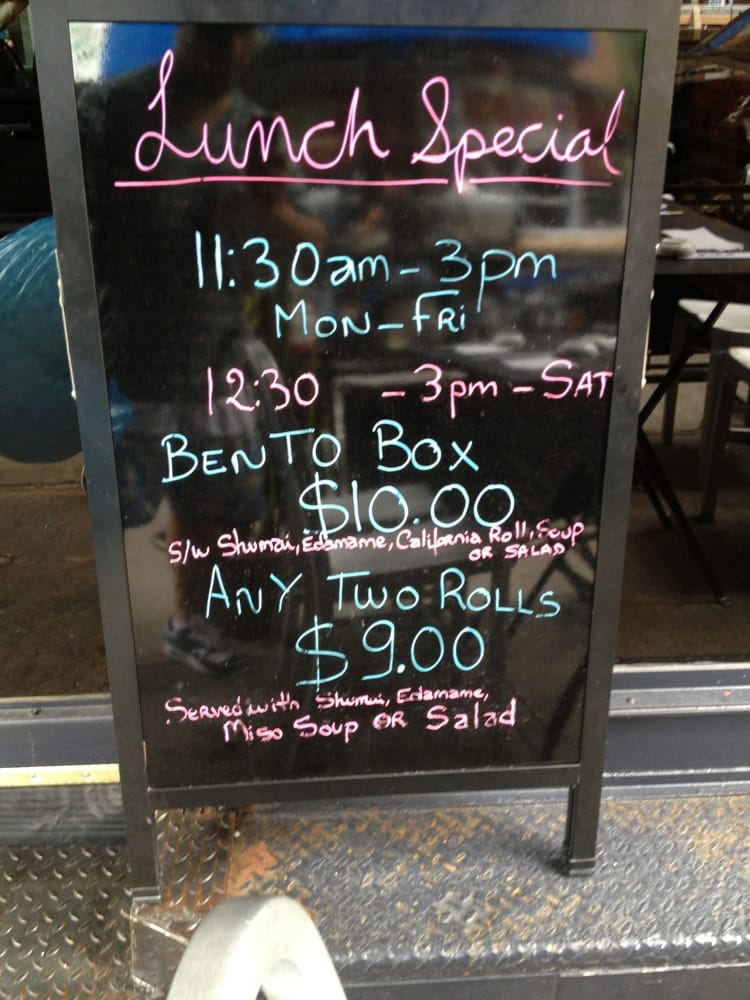 Lunch Special
11:30am - 3pm
MON - FRI
12:30 - 3pm - SAT
BENTO BOX
$10.00
S/w Shumai, Edamame, California Roll, Soup
OR SALAD
ANY TWO ROLLS
$9.00
Served with Shumai, Edamame,
Miso Soup OR Salad